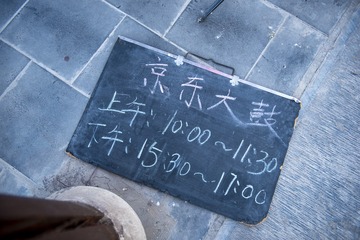 京东大鼓
上午：10:00～11:30
下午：15:30～17:00